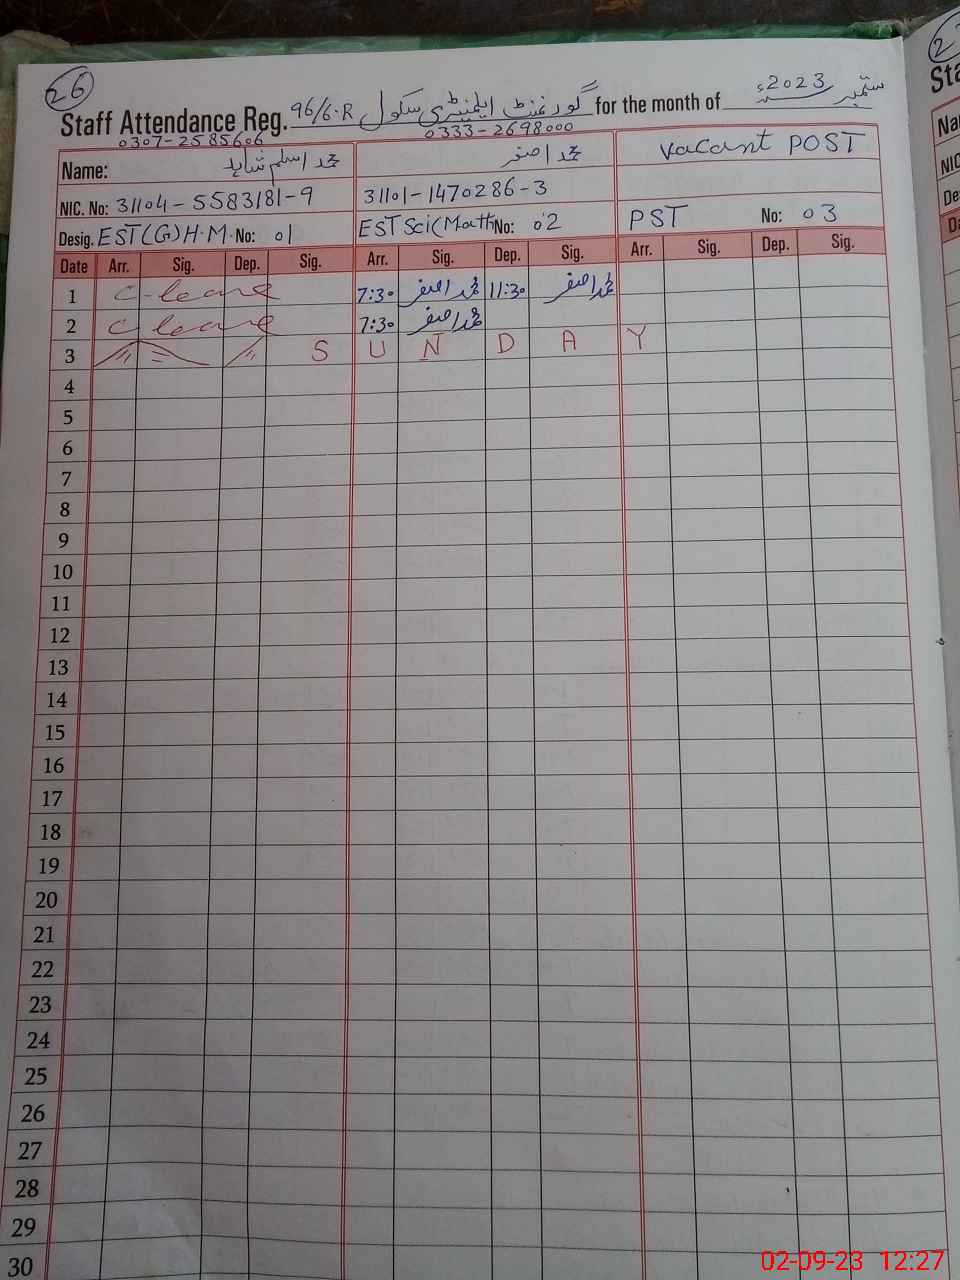 26
Staff Attendance Reg. گورنمنٹ ایلیمنٹری سکول 96/6.R for the month of ستمبر 2023ء
0307-2585606 0333-2698000
Name: محمد اسلم شاہد محمد اصغر Vacant POST
NIC. No: 31104-5583181-9 31101-1470286-3
Desig. EST(G)H.M. No: 01 EST Sci(Math No: 02 PST No: 03
Date Arr. Sig. Dep. Sig. Arr. Sig. Dep. Sig. Arr. Sig. Dep. Sig.
1 C-leave 7:30 محمد اصغر 11:30 محمد اصغر
2 C leave 7:30 محمد اصغر
3 S U N D A Y
4
5
6
7
8
9
10
11
12
13
14
15
16
17
18
19
20
21
22
23
24
25
26
27
28
29
30
27
Sta
Nar
NIC
De
Da
02-09-23 12:27